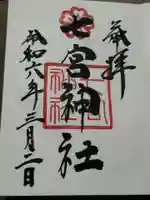 奉拝
七宮神社
令和六年三月二日